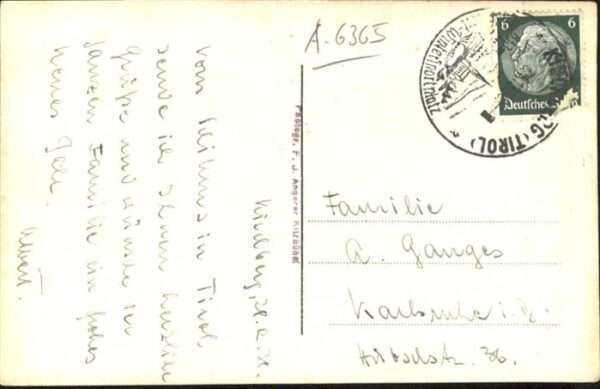 A-6365
6 6
Deutsches Reich
(TIROL)
Kirchberg, 28.
vom Skikurs in Tirol
sende ich Ihnen herzliche
Grüße und wünsche der
ganzen Familie ein frohes
neues Jahr.
Photogr. F. J. Angerer Kitzbühel
Familie
A. Ganges
Karlsruhe i. B.
36.